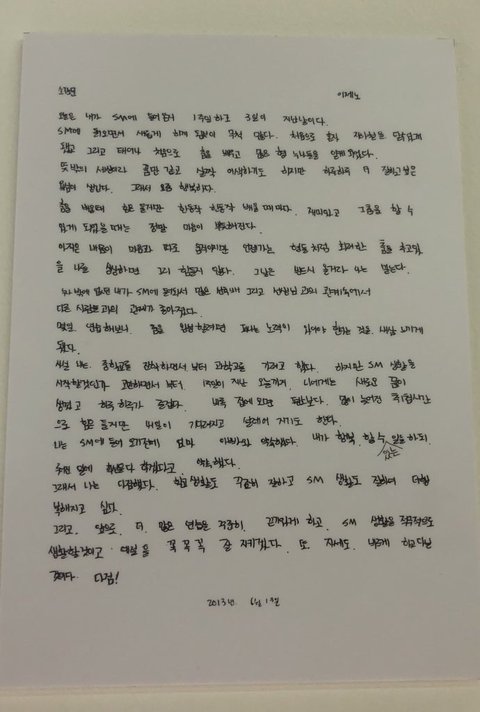 소감문 이제노
오늘은 내가 SM에 들어온지 1주일하고 3일이 지난날이다.
SM에 들어오면서 새롭게 하게 된일이 무척 많다. 처음으로 혼자 지하철을 타게
됐고 그리고 태어나 처음으로 춤을 배우고 많은 형 누나들을 알게 되었다.
뜻밖의 세상이라 살짝 어색하기도 하지만 하루하루 더 잘하고싶은
생긴다. 그래서 요즘 행복하다.
춤을 배울때 힘은 들지만 한동작 한동작 배울때마다. 재미있고 그춤을 할 수
있게 되었을때는 정말 마음이 뿌듯해진다.
아직은 내몸이 마음과 따로 움직이지만 언젠가는, 형들처럼 화려한 춤을 추고있
을 나를 상상하면 그리 힘들지 않다. 그날은 반드시 올거라 나는 믿는다.
내가 SM에 들어와서 많은 선후배 그리고 선생님과의 관계속에서
다른 사람들과의 관계가 좋아졌다.
연습해보니, 춤을 완성하려면 피나는 노력이 있어야 한다는 것을. 새삼 느끼게
됐다.
사실 나는. 중학교를 진학하면서 부터 과학고를 가려고 했다. 하지만 SM 생활을
시작할것인가 고민하면서 부터 1주일이 지난 오늘까지. 나에게는 새로운 꿈이
생겼고 하루 하루가 즐겁다. 많이 늦어진 취침시간
으로 힘은 들지만 내일이 기다려지고 설레어 지기도 한다.
나는 SM에 들어 오기전에 엄마 아빠와 약속했다. 내가 할 수 있는 일을 하되,
했다.
그래서 나는 다짐했다. 학교생활도 꾸준히 잘하고 SM 생활도 잘하여 더행
복해지고 싶다.
그리고. 앞으로. 더. 많은 연습을 꾸준히, 끈기있게 하고, SM 생활을 적극적으로
생활할것이고 을 꼭꼭꼭 잘 지키겠다. 또 자세도. 바르게 하고다닐
것이다. 다짐!
2013년 6월 1일